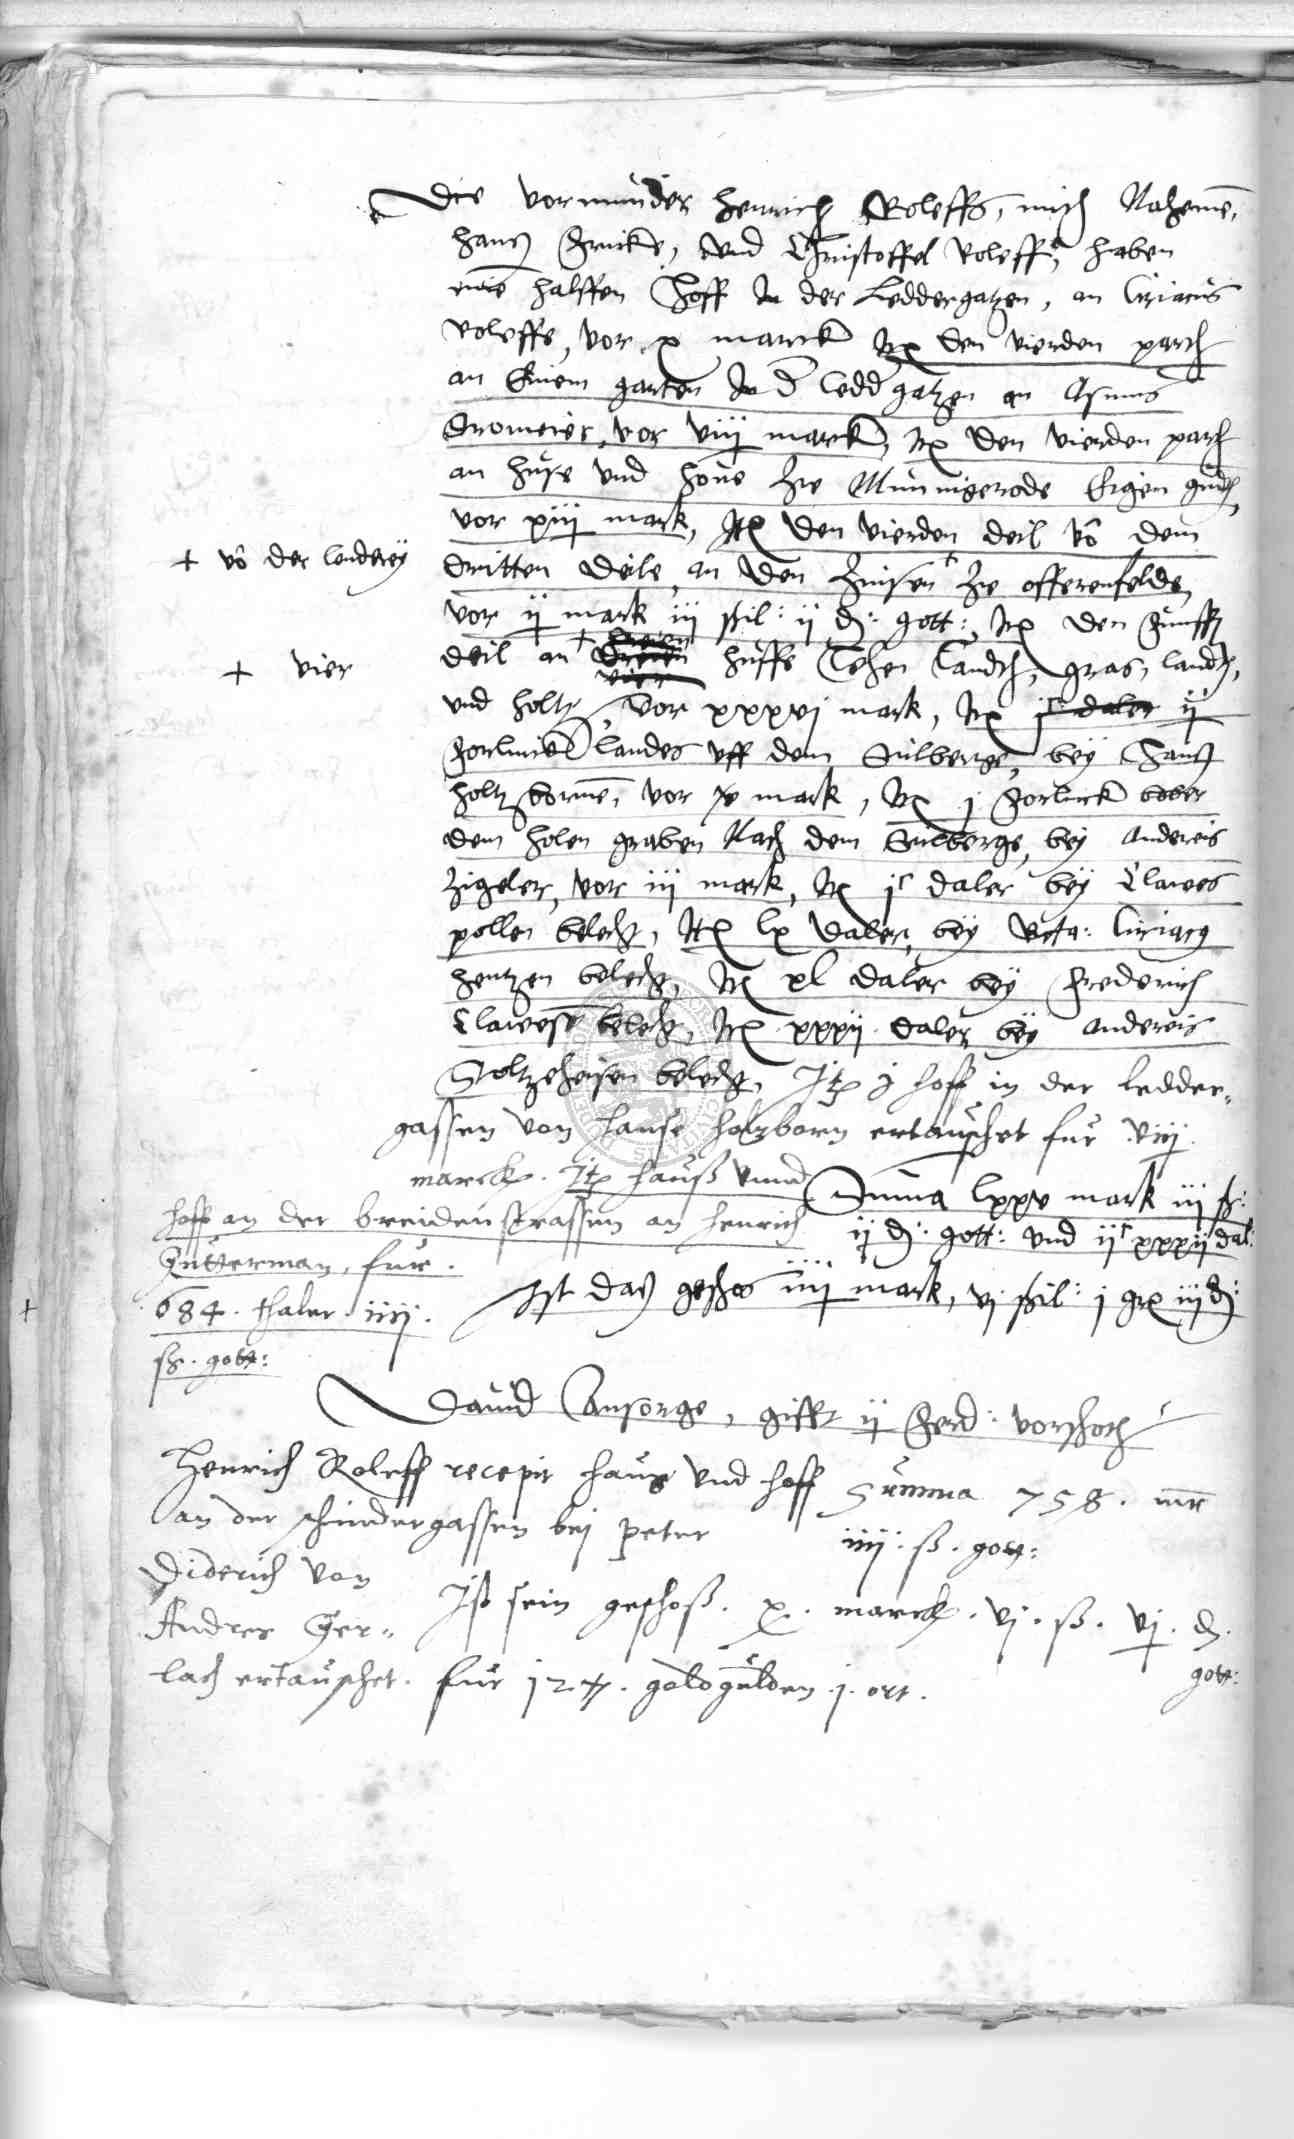 Die vormunder Henrich Roleffs, mith Nahemen,
Hans Fricke, vnd Christoffel Roleffs, haben
eine halffen Hoff In der Leddergatzen, an Ciriacus
Roleffs, vor x marck Itm den vierden parth
an Einem garten In d ledd gatzen an Asmus
Dromeier, vor viij marck, Itm den vierden parth
an huse vnd houe zw Minnigerode Eigen guth,
vor xiij mark, Itm den vierden deil vō dem
+ vō der lenderey
dritten deile an den Zinsen + zw offerenfelde,
vor ij mark iij ßil: ij d: gott:, Itm den Funfft
+ vier
deil an + huffe Lehen Landt, gras, landt,
vnd holtz, vor xxxvj mark, Itm jc daler ij
Forlinck landes vff dem Sulberge, bey Hans
holtzbornē, vor x mark, Itm j Forlinck bober
dem holen graben Nach dem Sulberge, bey Andreis
Zigeler, vor iij mark, Itm jc daler bey Clawes
pollen belecht, Itm lx daler, bey Ciriacus
Hentzen belecht, Itm xl daler bey Frederich
Clawesē belecht, Itm xxxij daler bey Andreis
Stoltzehesen belecht, Itm j hoff in der ledder-
gassen von Hanse holzborn ertauschet fur viij.
marck. Itm hauß vnnd
hoff an der breidenstrassen an Henrich
Gutterman, fur.
684. thaler. iiij.
ß. gott:
Summa lxxv mark iij ß:
ij d: gott: vnd ijc xxxij dal:
Ist das geschos iiij mark, vj ßil: j gr iij d:
Dauid Ansorge, gifft ij ferd: vorschoth
Henrich Roleff recepit hauß vnd hoff
an der schmedergassen bei Peter
Diderich von
Andres Ger-
lach ertauschet. fur 127. goldgulden. j. ort.
Summa 758. mr
iiij. ß. gott:
Ist sein geschoß. x. marck. vj. ß. vj. d.
gott: